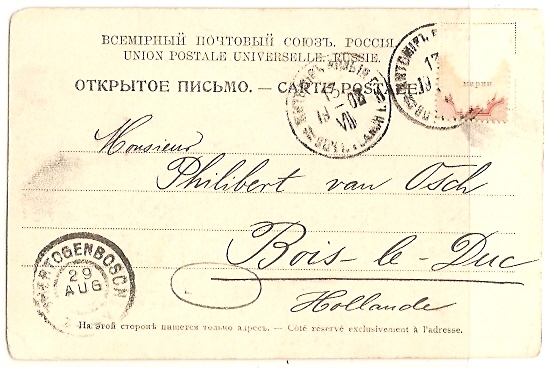 ВСЕМІРНЫЙ ПОЧТОВЫЙ СОЮЗЪ. РОССІЯ.
UNION POSTALE UNIVERSELLE. RUSSIE.
ОТКРЫТОЕ ПИСЬМО. — CARTE POSTALE.
марки
13
VII
Monsieur
Philibert van Osch
Bois-le-Duc
Hollande
HERTOGENBOSCH
29
AUG
На этой сторонѣ пишется только адресъ. — Côté réservé exclusivement à l'adresse.